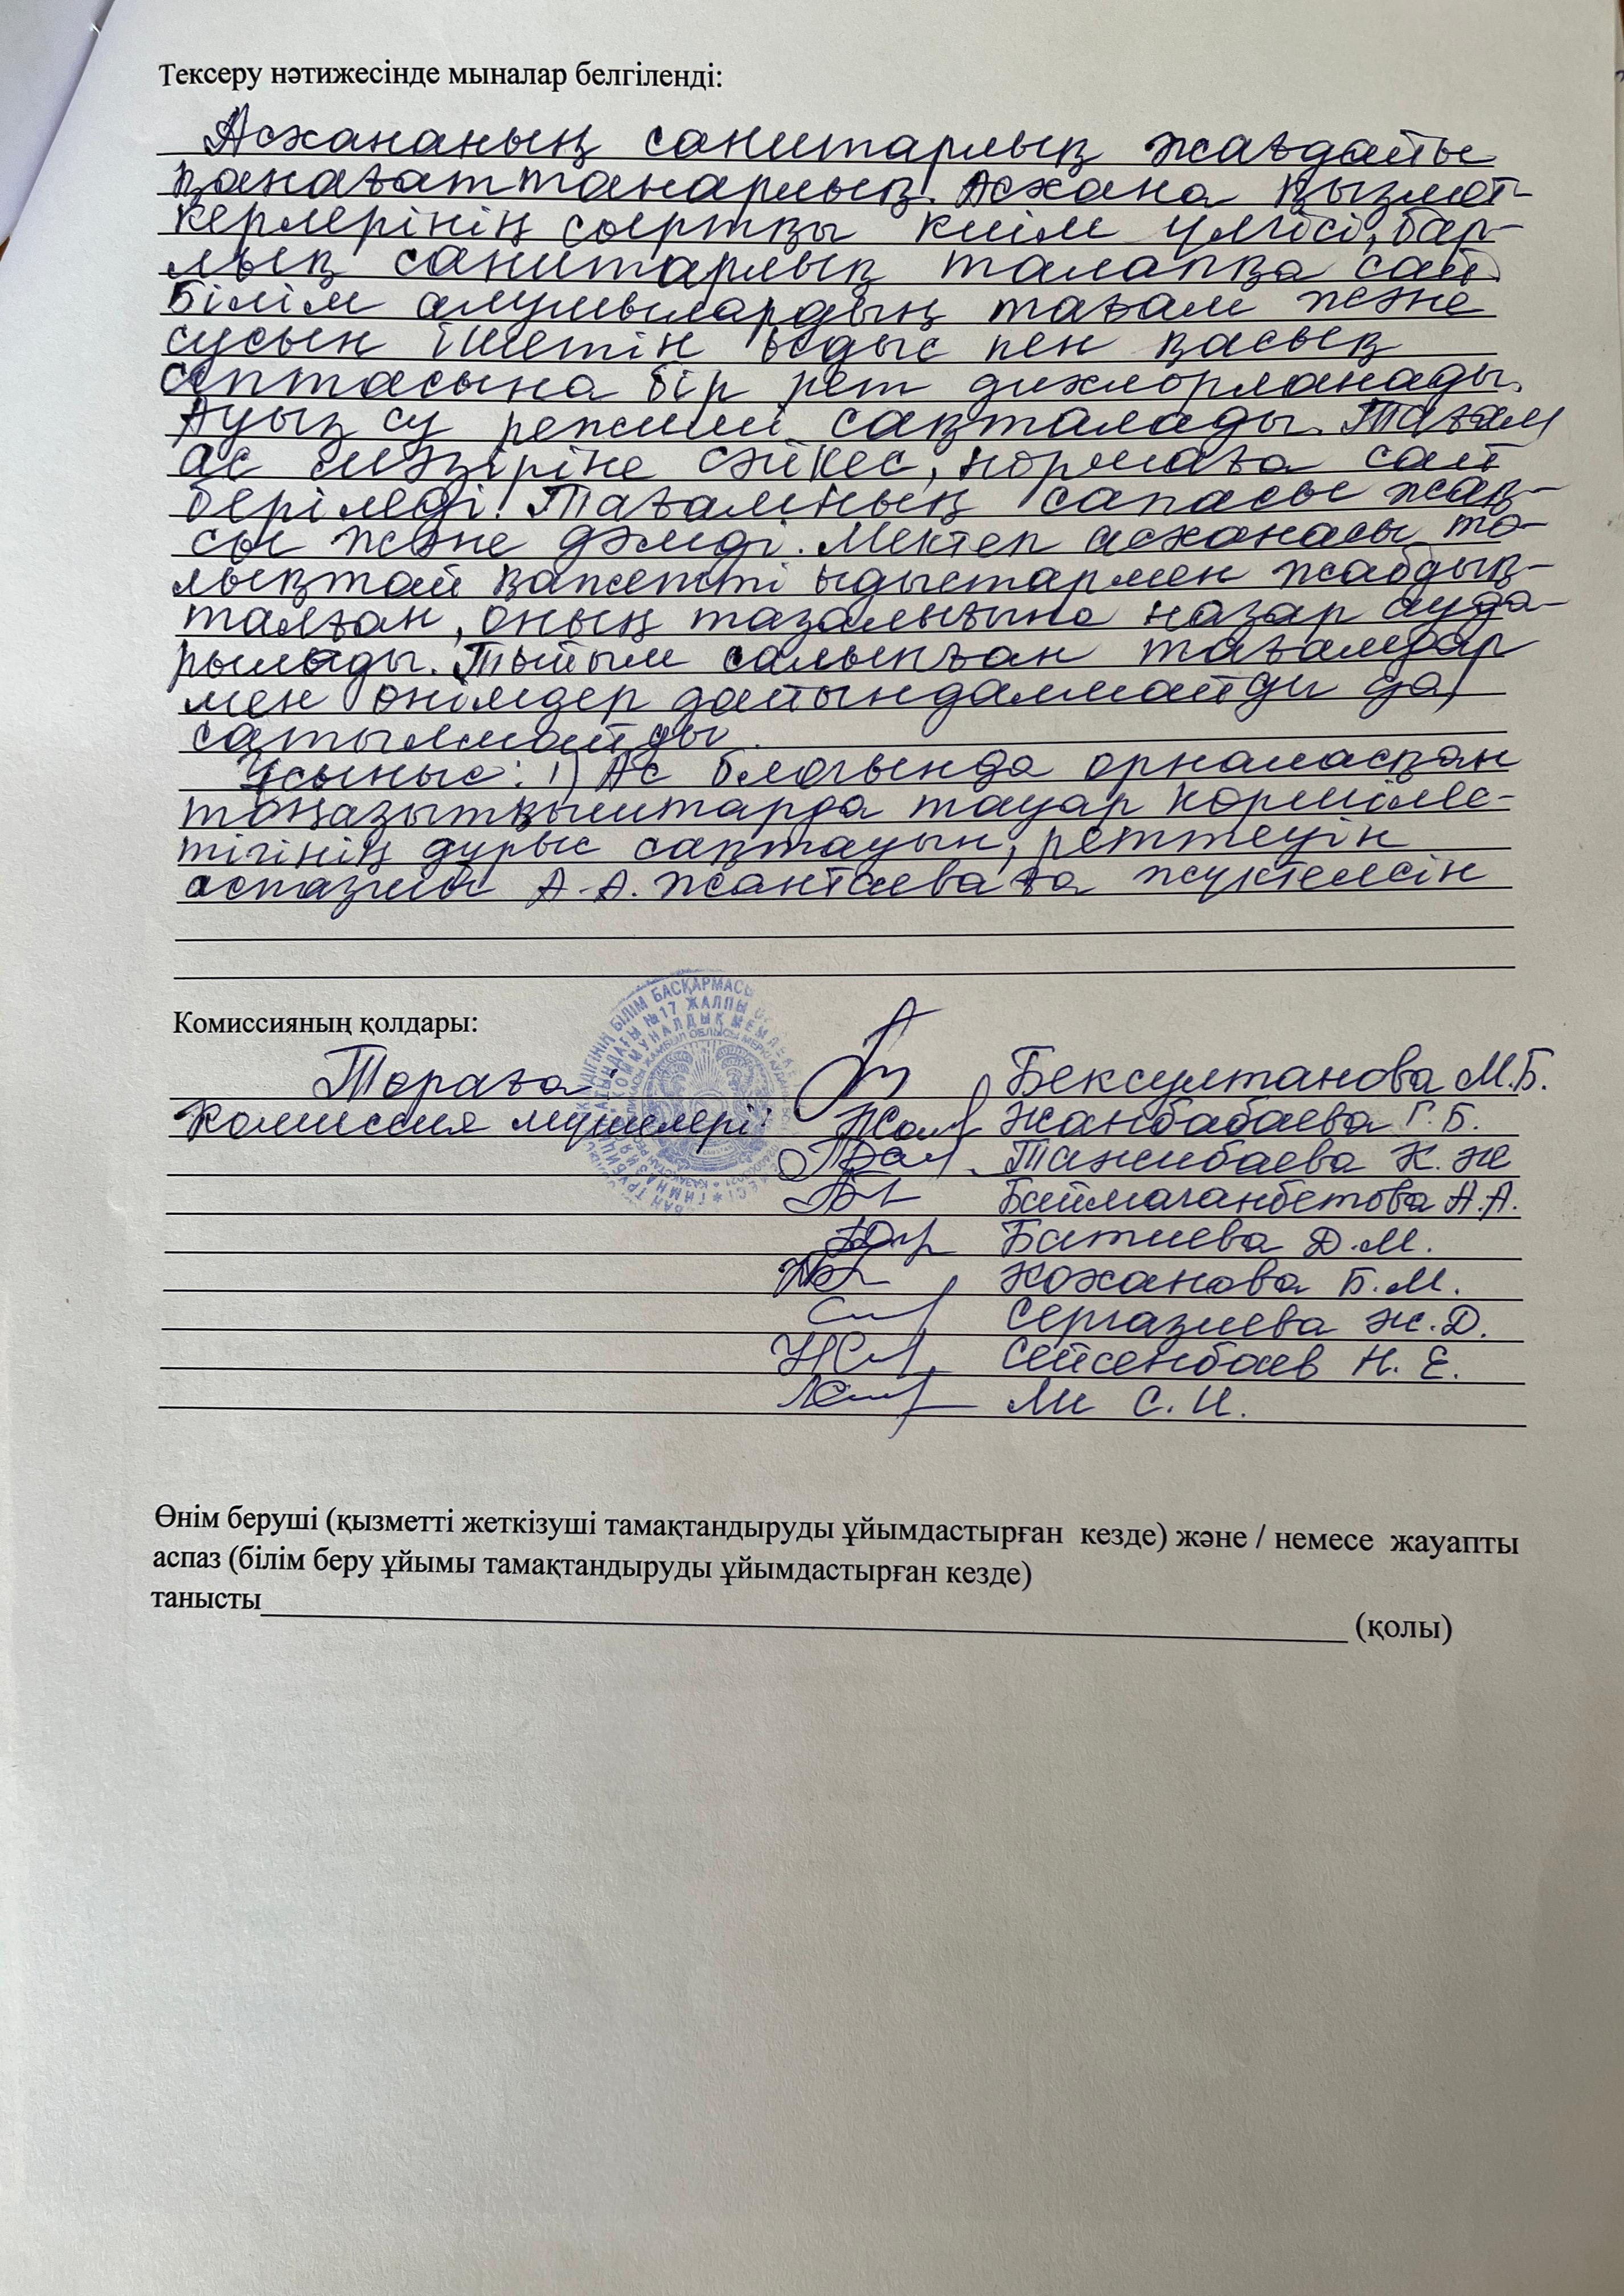 Тексеру нәтижесінде мыналар белгіленді:
Асхананың санитарлық жағдайы
қанағаттанарлық. Асхана қызмет-
керлерінің сыртқы киім үлгісі, бар-
лық санитарлық талапқа сай.
Білім алушылардың тағам және
сусын ішетін ыдыс пен қасық
аптасына бір рет дихлорланады.
Ауыз су режимі сақталады. Тағам
ас мәзіріне сәйкес, нормаға сай
беріледі. Тағамның сапасы жақ-
сы және дәмді. Мектеп асханасы то-
лықтай қажетті ыдыстармен жабдық-
талған, оның тазалығына назар ауда-
рылады. Тыйым салынған тағамдар
мен өнімдер дайындалмайды да,
сатылмайды.
Ұсыныс: 1) Ас блогында орналасқан
тоңазытқыштарда тауар көрмілес-
тігінің дұрыс сақтауын, реттеуін
аспазшы А.А. Жантаеваға жүктелсін
Комиссияның қолдары:
Төраға: Бексултанова М.Б.
Комиссия мүшелері: Жанбабаева Г.Б.
Танибаева К.Ж
Баймаганбетова А.А.
Батиева Д.М.
Кожанова Б.М.
Сергазиева Ж.Д.
Сейсенбаев Н.Е.
Ли С.И.
Өнім беруші (қызметті жеткізуші тамақтандыруды ұйымдастырған кезде) және / немесе жауапты
аспаз (білім беру ұйымы тамақтандыруды ұйымдастырған кезде)
танысты (қолы)